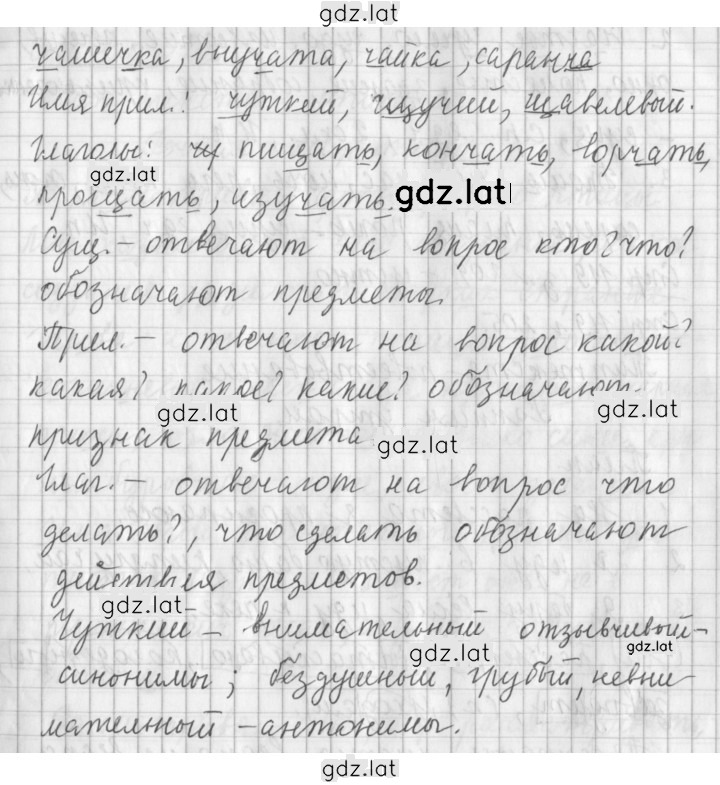 gdz.lat
чашечка, внучата, чайка, саранча
Имя прил.: чуткий, щучий, щавелевый.
Глаголы: пищать, кончать, ворчать,
gdz.lat
прощать, изучать. gdz.lat
Сущ. – отвечают на вопрос кто? что?
обозначают предметы.
Прил. – отвечают на вопрос какой?
какая? какое? какие? обозначают
gdz.lat gdz.lat
признак предмета gdz.lat
Глаг. – отвечают на вопрос что
делать?, что сделать обозначают
действия предметов.
gdz.lat
Чуткий – внимательный отзывчивый –
gdz.lat gdz.lat
синонимы; бездушный, грубый, невни-
мательный – антонимы.
gdz.lat